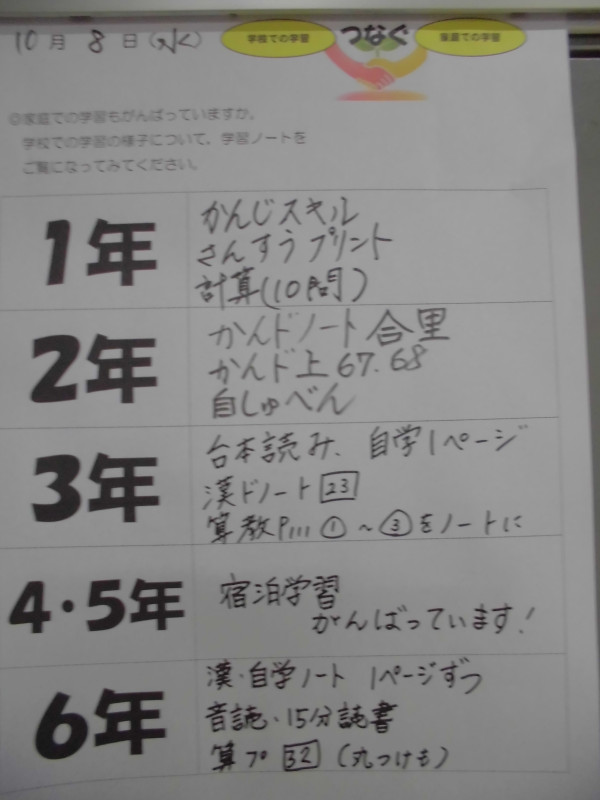 10月8日(水)
学校での学習
つなぐ
家庭での学習
◎家庭での学習もがんばっていますか。
学校での学習の様子について、学習ノートを
ご覧になってみてください。
1年
かんじスキル
さんすうプリント
計算(10問)
2年
かんドノート 合里
かんド上 67.68
自しゅべん
3年
台本読み、自学1ページ
漢ドノート 23
算教P111 ①~③をノートに
4・5年
宿泊学習
がんばっています!
6年
漢・自学ノート 1ページずつ
音読・15分読書
算プ 32 (丸つけも)